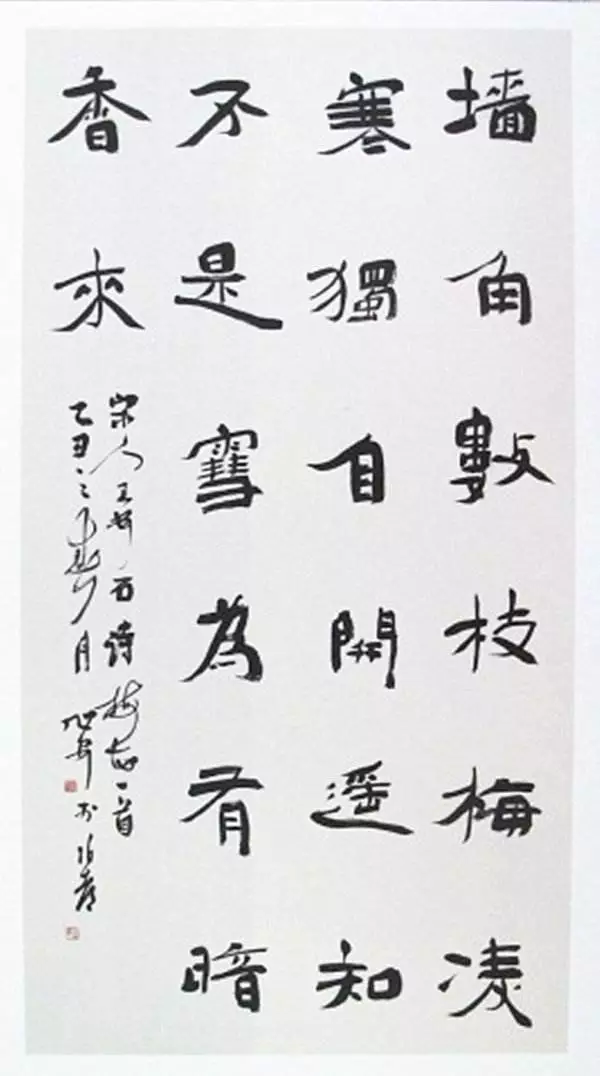 墙角數枝梅凌
寒獨自開遥知
不是雪為有暗
香來
宋人王安石詩梅花一首
乙丑之春月